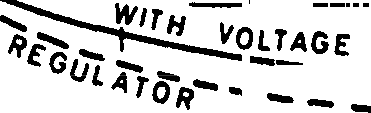 WITH VOLTAGE
REGULATOR